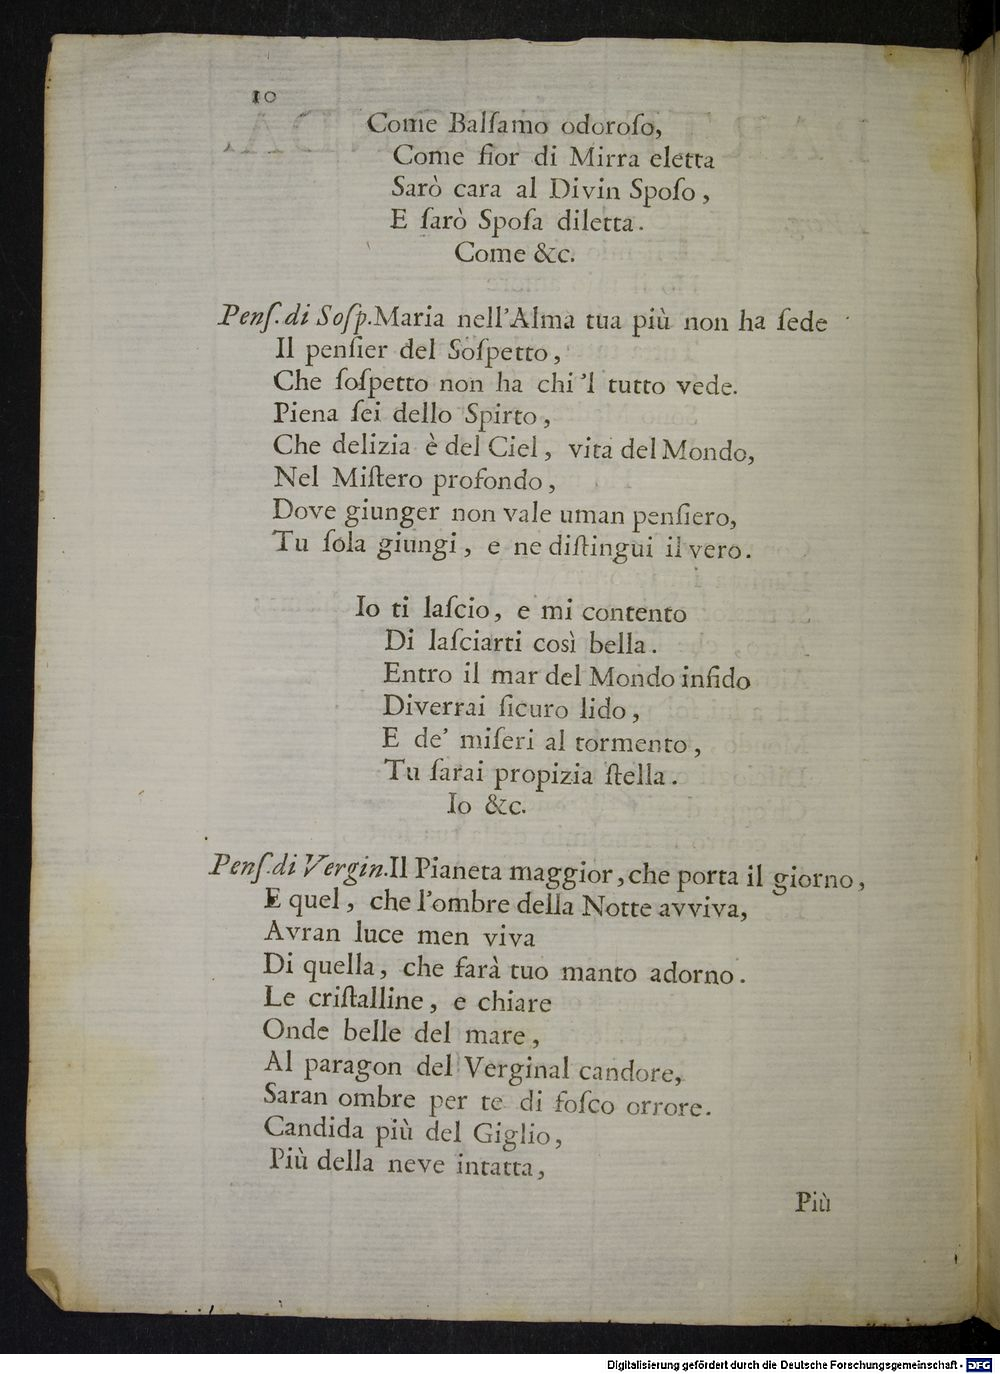 10
Come Balſamo odoroſo,
Come fior di Mirra eletta
Sarò cara al Divin Spoſo,
E ſarò Spoſa diletta.
Come &c.
Penſ. di Soſp. Maria nell'Alma tua più non ha ſede
Il penſier del Soſpetto,
Che ſoſpetto non ha chi 'l tutto vede.
Piena ſei dello Spirto,
Che delizia è del Ciel, vita del Mondo,
Nel Miſtero profondo,
Dove giunger non vale uman penſiero,
Tu ſola giungi, e ne diſtingui il vero.
Io ti laſcio, e mi contento
Di laſciarti così bella.
Entro il mar del Mondo infido
Diverrai ſicuro lido,
E de' miſeri al tormento,
Tu ſarai propizia ſtella.
Io &c.
Penſ. di Vergin. Il Pianeta maggior, che porta il giorno,
E quel, che l'ombre della Notte avviva,
Avran luce men viva
Di quella, che farà tuo manto adorno.
Le criſtalline, e chiare
Onde belle del mare,
Al paragon del Verginal candore,
Saran ombre per te di foſco orrore.
Candida più del Giglio,
Più della neve intatta,
Più
Digitalisierung gefördert durch die Deutsche Forschungsgemeinschaft - DFG